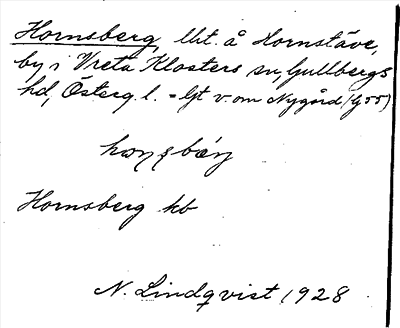 Hornsberg, lht. å Hornstäve,
by i Vreta Klosters sn, Gullbergs
hd, Österg. l. - lgt v. om Nygård (G 55)
Hornsberg kb
N. Lindqvist 1928